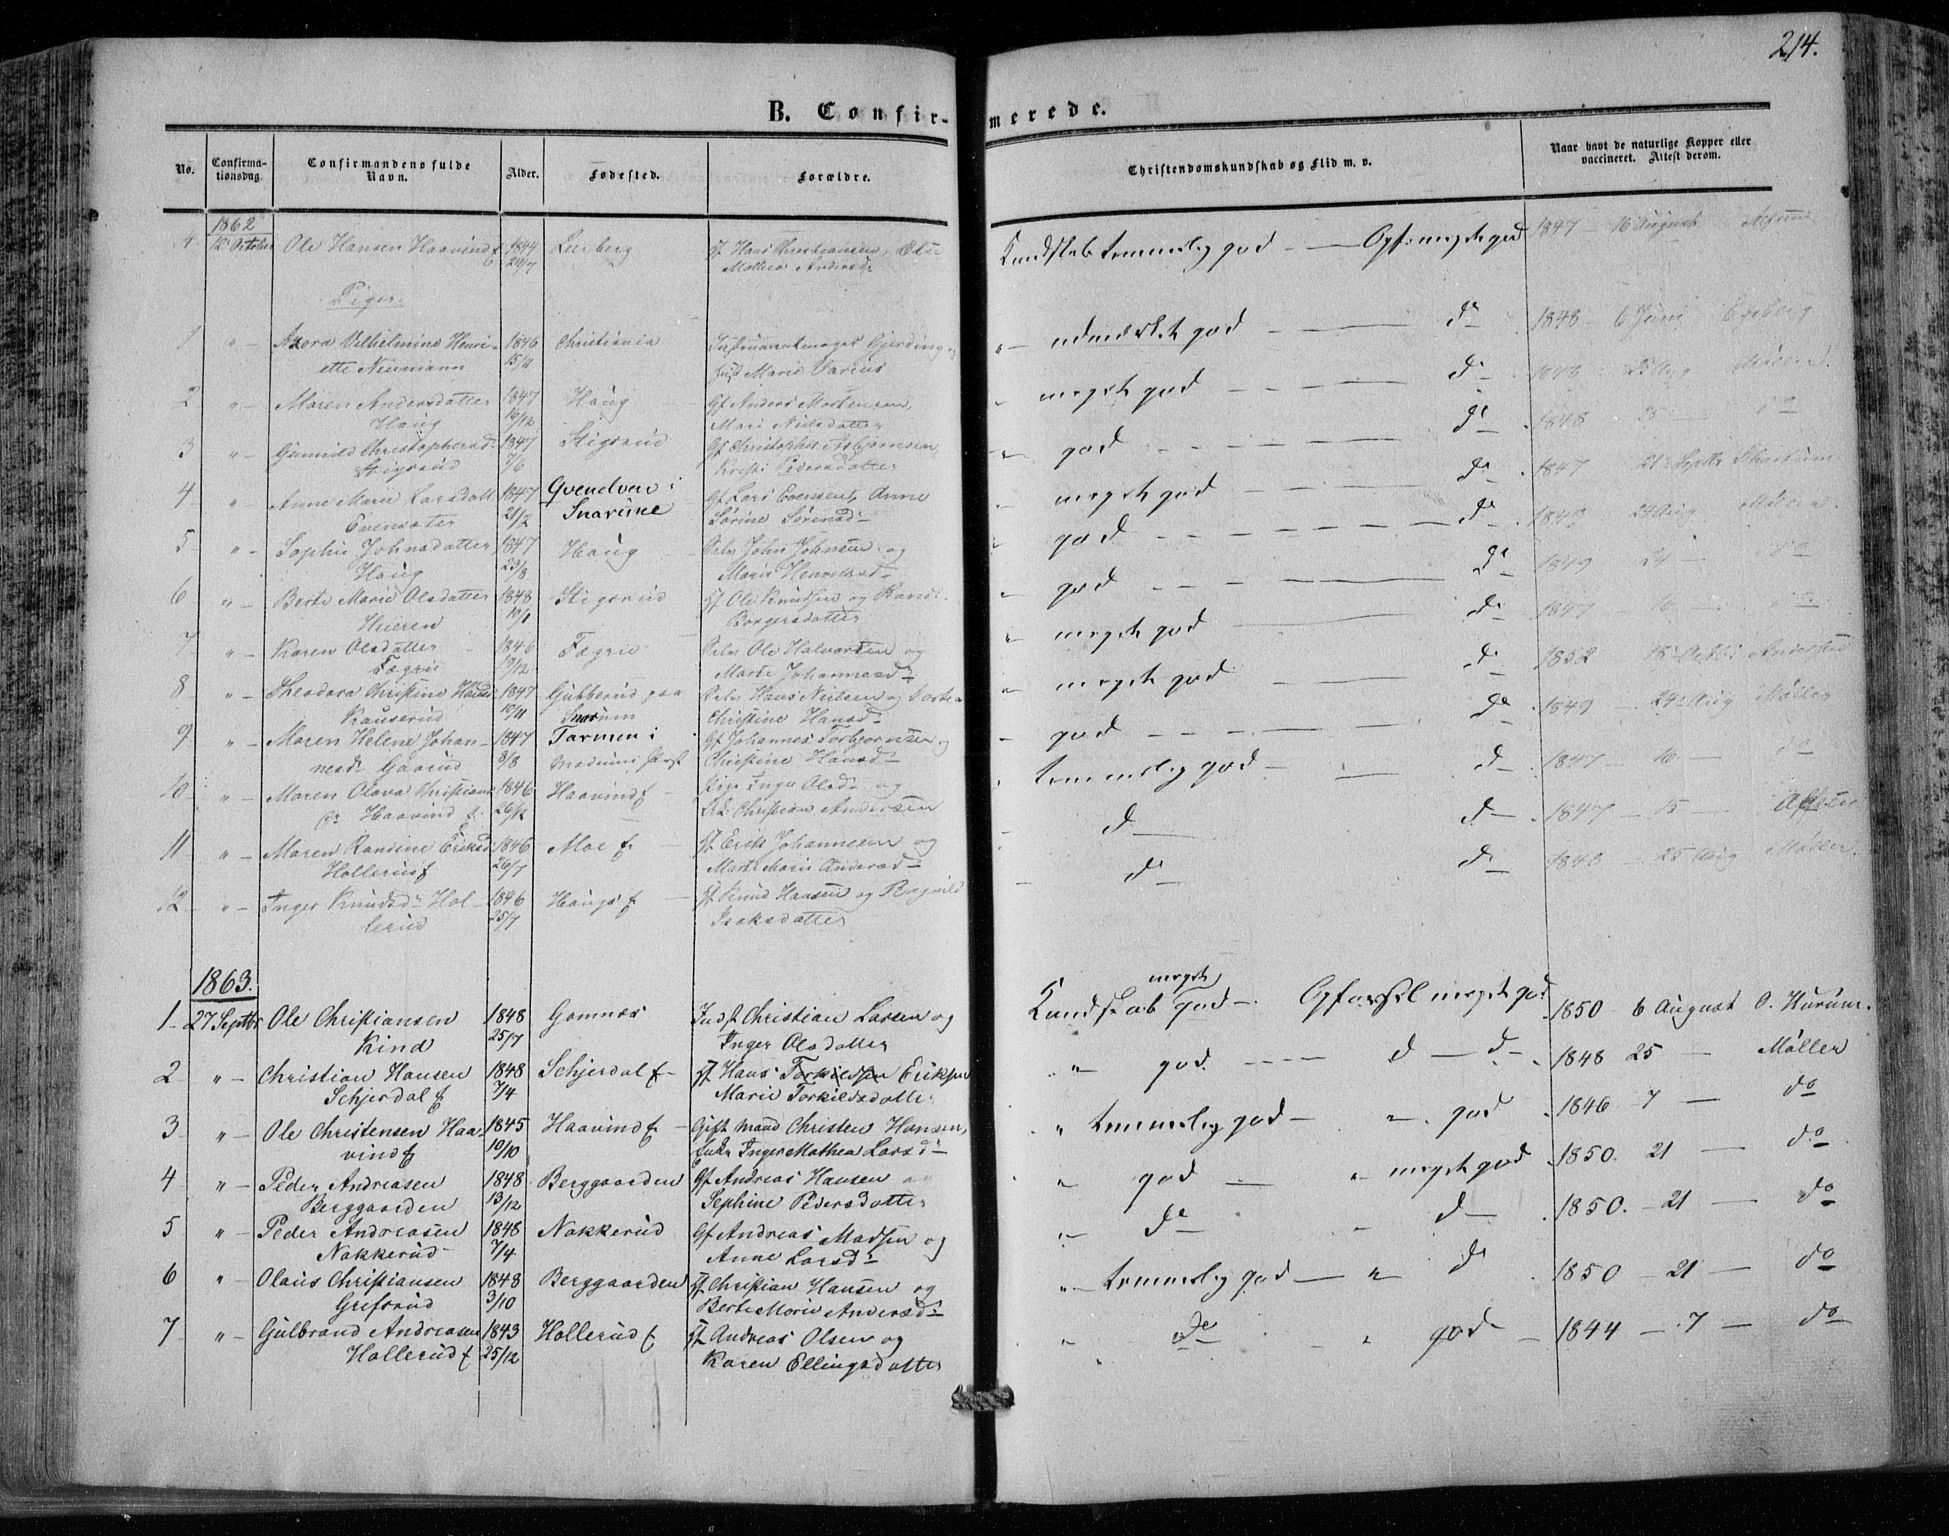 214.
B. Confir-
merede.
No.
Confirma-
tionsdag.
Confirmandens fulde
Navn.
Alder.
Fødested.
Forældre.
Christendomskundskab og Flid m. v.
Naar havt de naturlige Kopper eller
vaccineret. Attest derom.
1862
4 12 October Ole Hansen Haavind 1844 Lerberg Hans Christiansen, Else Kundskab temmelig god — Opf. meget god 1847 16 August
24/7 Mathea Andersd:
Piger:
1 " Vilhelmine Henri- 1846 Christiania Instrumentmager Gjerding " udmærket god — do 1848 6 Juni Egeberg
ette Neumann 15/11 Marie
2 " Maren Andersdatter 1847 Haug Gf Anders Mortensen, " meget god — do
Haug 16/12 Mari Nielsdatter
3 " Gunnild Christophersd: 1847 Stigsrud Gf Christopher " god — do 1848 25 — do
Stigsrud 7/6 Kristi Pedersdatter
4 " Anne Marie Larsdatt 1847 Qvendven i Gf Lars Evensen, Anne " meget god — do 1847 21 Septbr
21/2 Snarume Sørine Sørensd:
5 " Sophie Johnsdatter 1847 Haug John Johnsen og " god — do 1849 24 Aug Møller
Haug 23/8 Marie Henriksd:
6 " Berte Marie Olsdatter 1848 Stigsrud Ole Knudsen og Randi " god — do 1849 24 — do
10/1 Borgersdatter
7 " Karen Olsdatter 1846 Fægrie Ole Halvorsen og " meget god — do 1847 16 — do
Fægrie 19/12 Marte Johannesd:
8 " Theodora Christine Hansd: 1847 Gubberud paa Hans Nielsen og " meget god — do 1852 18 Octbr Andersen
10/11 Snarum Christine Hansd:
9 " Maren Helene Johan- 1847 Tarmen i Gf Johannes Torbjornsen og " god — do 1849 24 Aug Møller
nesd: Gaarud 8/8 Modums Præst Christine Hansd:
10 " Maren Olava Christians- 1846 Haavind Pige Inger Olsd: og temmelig god — do 1847 16 — do
Haavind 26/12 Christian Andersen
11 " Maren Randine Eriksd: 1846 Moe Erik Johannesen og do — do 1847 15 —
Hollerud 26/7 Marte Marie Andersd:
12 " Inger Knudsd: Hol- 1846 Haugs Knud Hansen og Ragnild do — do 25 Aug Møller
lerud 25/7 Isaksdatter
1863.
1 27 Septbr Ole Christiansen 1848 Gomnæs Inds. Christian Larsen og Kundskab meget god — Opførsel meget god 1850 6 August O. Hurum.
Kind 25/7 Inger Olsdatter
2 " Christian Hansen 1848 Schjerdal Hans Torkildsen Eriksen " god — do — do 1848 25 — Møller
Schjerdal 7/4 Marie Torkildsdatter
3 " Ole Christensen Haa- 1845 Haavind Gift Mand Christen Hansen, " temmelig god — " god 1846 7 — do
vind 10/10 Enke Inger Mathea Larsd:
4 " Peder Andreasen 1848 Berggaarden Gf Andreas Hansen og " god — " meget god 1850. 21 — do
Berggaarden 13/12 Sephine Pedersdatter
5 " Peder Andreasen 1848 Nakkerud Gf Andreas Madsen og " do — " do 1850. 21 — do
Nakkerud 7/4 Anne Larsd:
6 " Olaus Christiansen 1848 Berggaarden Christian Hansen og " temmelig god — " do 1850 21 — do
Grefsrud 3/10 Berte Marie Andersd:
7 " Gulbrand Andreasen 1843 Hollerud Andreas Olsen og " do " god — 1844 7 — do
Hollerud 25/12 Karen Ellingsdatter